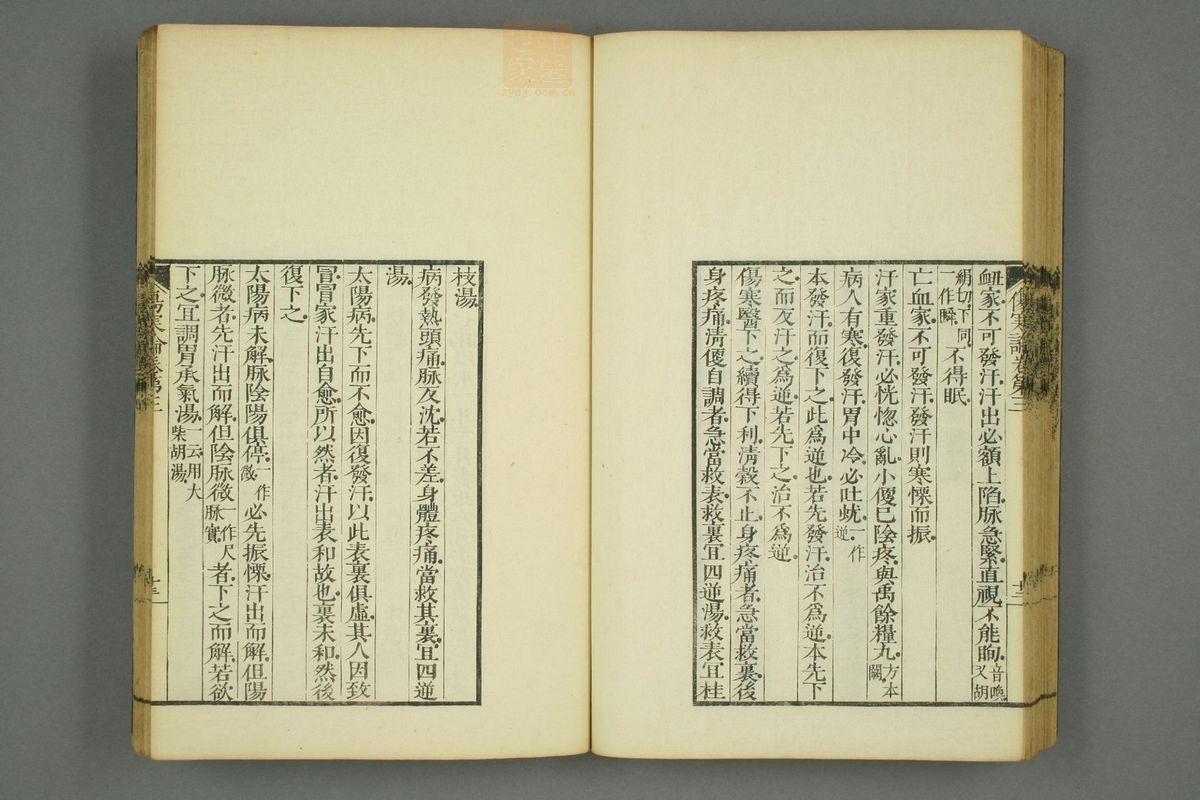 衄家不可發汗汗出必額上陷脉急緊直視不能眴音喚又胡
絹切下同一作瞬不得眠
亡血家不可發汗發汗則寒慄而振
汗家重發汗必恍惚心亂小便已陰疼與禹餘糧丸方本闕
病人有寒復發汗胃中冷必吐蚘一作逆
本發汗而復下之此爲逆也若先發汗治不爲逆本先下
之而反汗之爲逆若先下之治不爲逆
傷寒醫下之續得下利淸穀不止身疼痛者急當救裏後
身疼痛淸便自調者急當救表救裏宜四逆湯救表宜桂
枝湯
病發熱頭痛脉反沈若不差身體疼痛當救其裏宜四逆
湯
太陽病先下而不愈因復發汗以此表裏俱虛其人因致
冒冒家汗出自愈所以然者汗出表和故也裏未和然後
復下之
太陽病未解脉陰陽俱停一作微必先振慄汗出而解但陽
脉微者先汗出而解但陰脉微一作尺脉實者下之而解若欲
下之宜調胃承氣湯一云用大柴胡湯
傷寒論卷第三
十三
zysj.com.cn